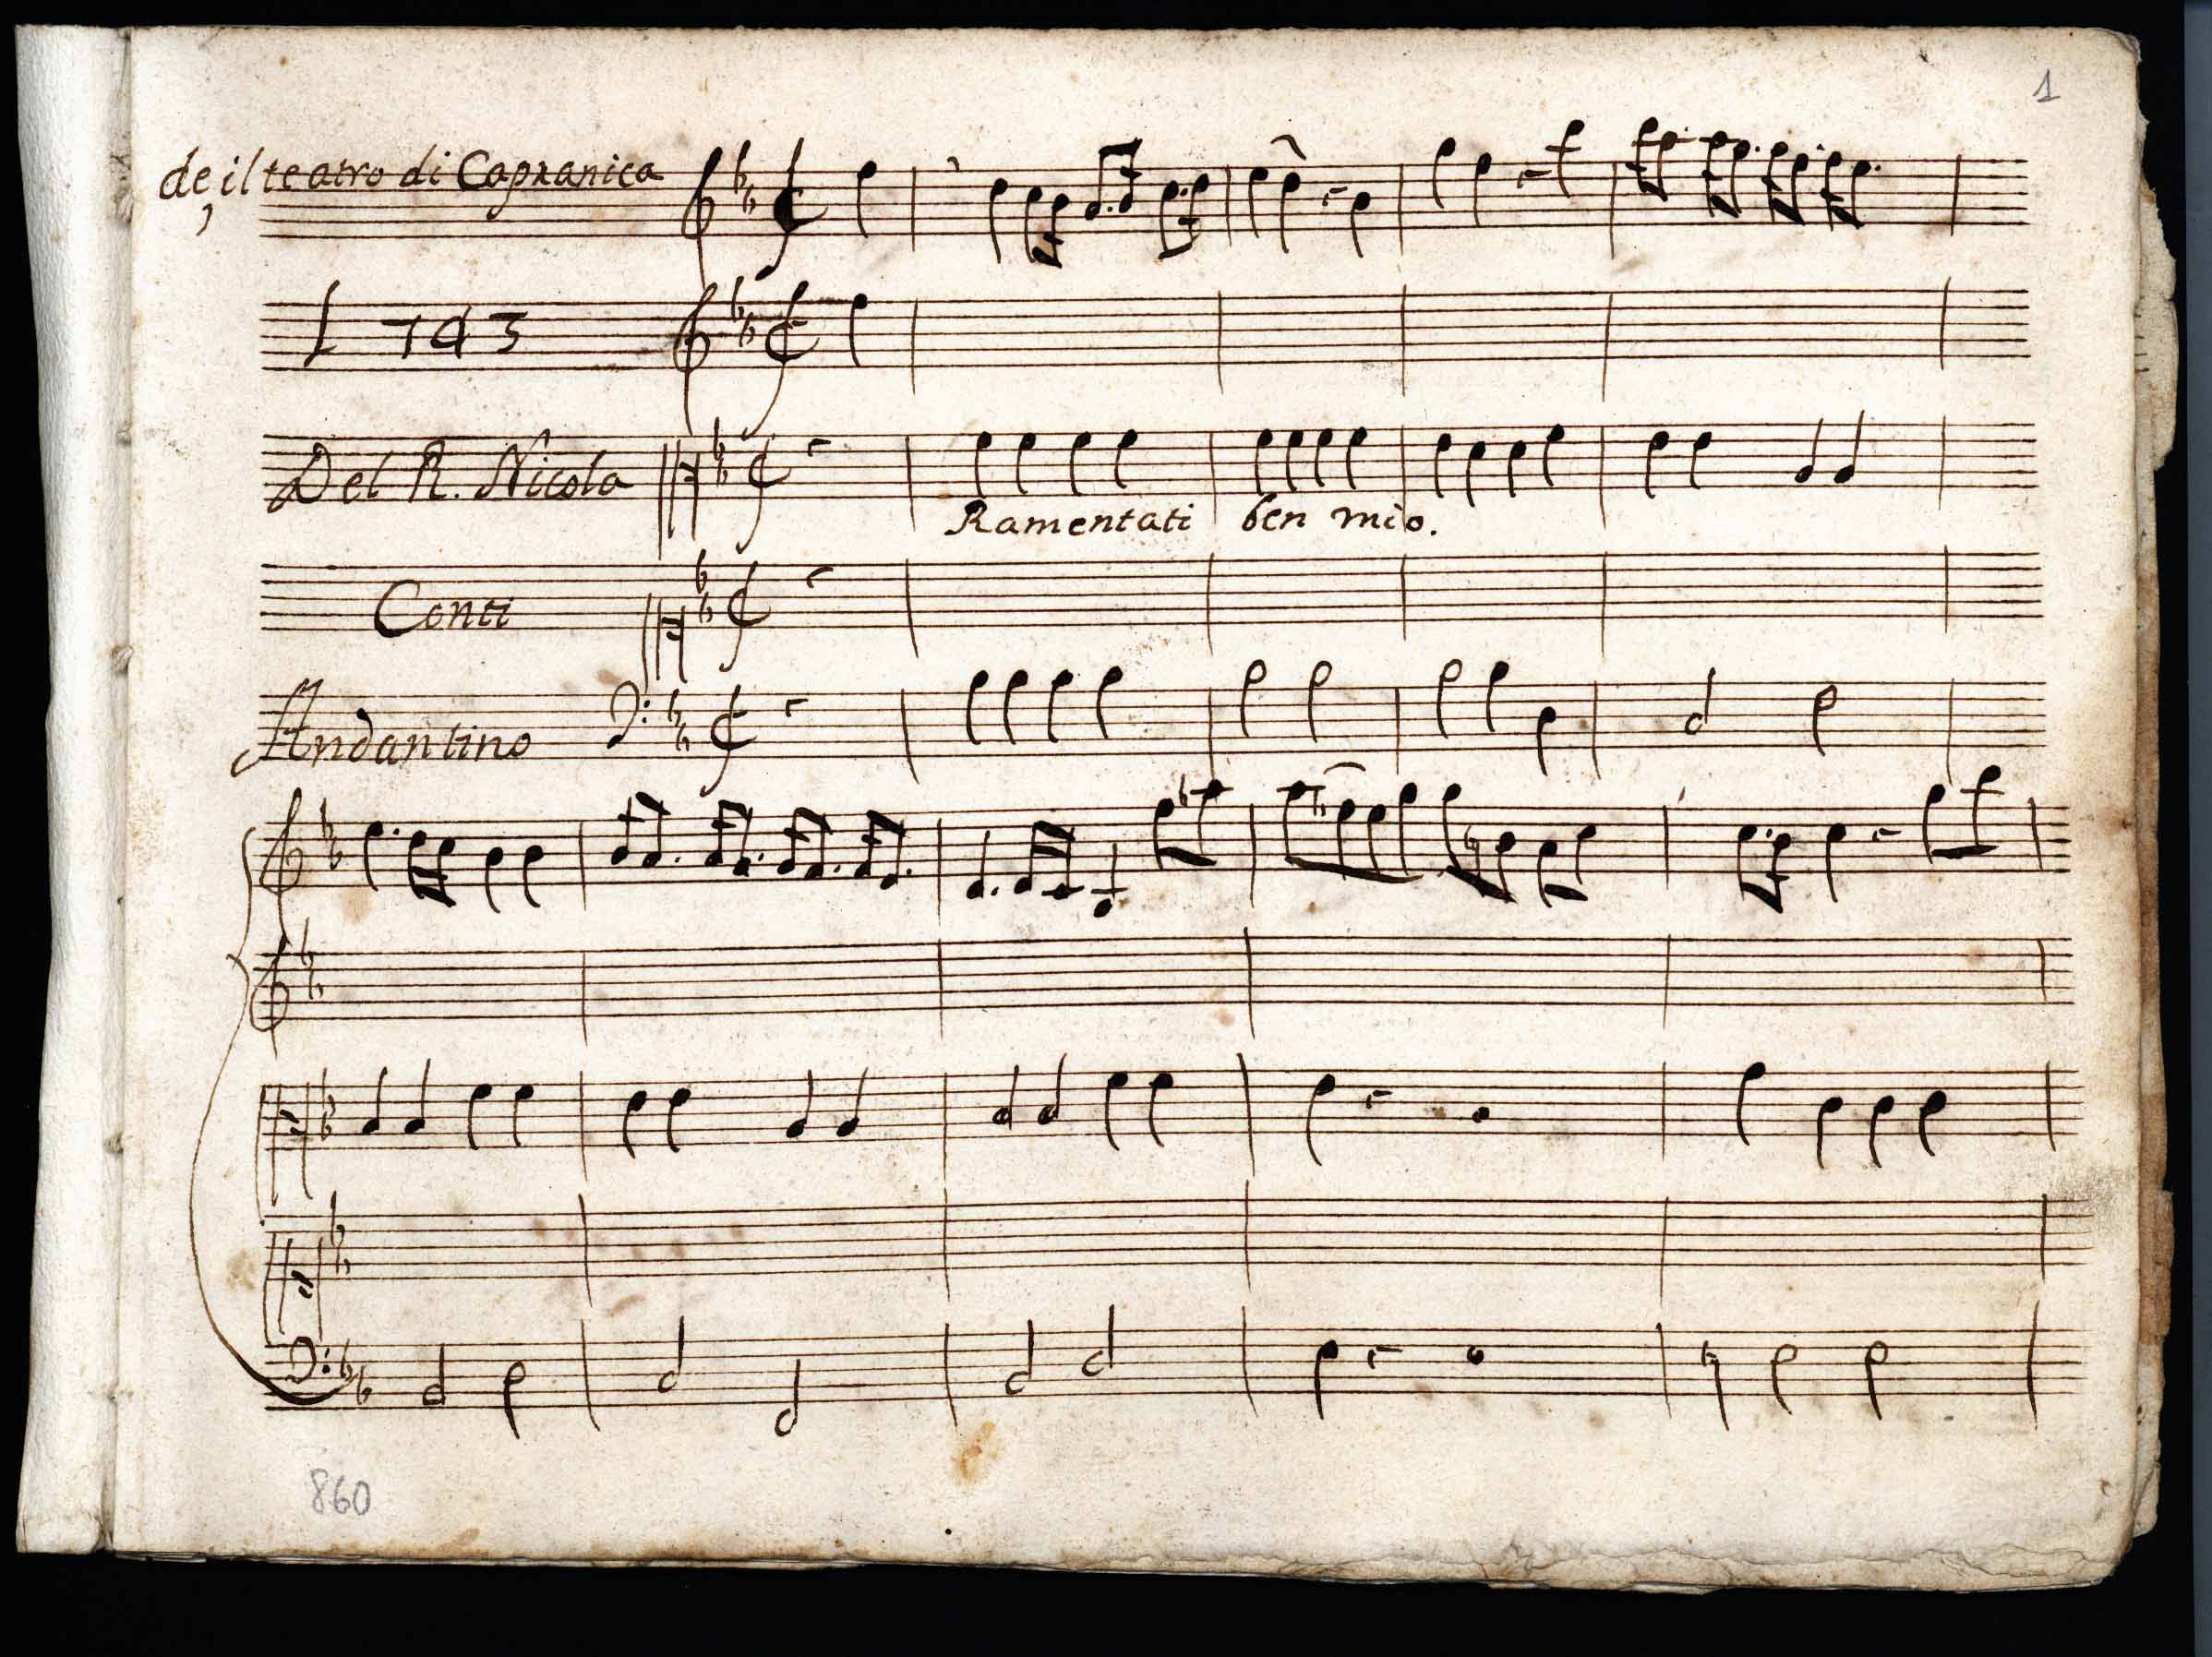 1
de, il teatro di Capranica
L 743
Del R. Nicola
Ramentati ben mio.
Conti
Andantino
860